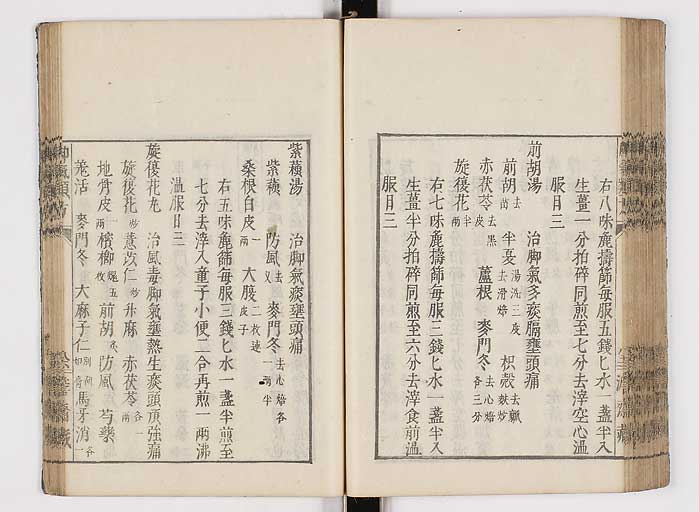 右八味麄擣篩每服五錢匕水一盞半入
生薑一分拍碎同煎至七分去滓空心溫
服日三
前胡湯 治脚氣多痰膈壅頭痛
前胡 去苗 半夏 湯洗二度去滑焙 枳殼 去瓤麩炒
赤茯苓 去黑皮 蘆根 麥門冬 去心焙各三分
旋復花 半兩
右七味麄擣篩每服三錢匕水一盞半入
生薑半分拍碎同煎至六分去滓食前溫
服日三
紫蘇湯 治脚氣痰壅頭痛
紫蘇 防風 去叉 麥門冬 去心焙各一兩半
桑根白皮 一兩 大腹 二枚連皮子
右五味麄擣篩每服三錢匕水一盞半煎至
七分去滓入童子小便二合再煎一兩沸
溫服日三
旋復花丸 治風毒脚氣壅熱生痰頭項強痛
旋復花 炒 薏苡仁 炒 升麻 赤茯苓 各一兩
地骨皮 一兩 檳榔 五枚 前胡 防風 芎藭
羗活 麥門冬 大麻子仁 別研 馬牙消 各一